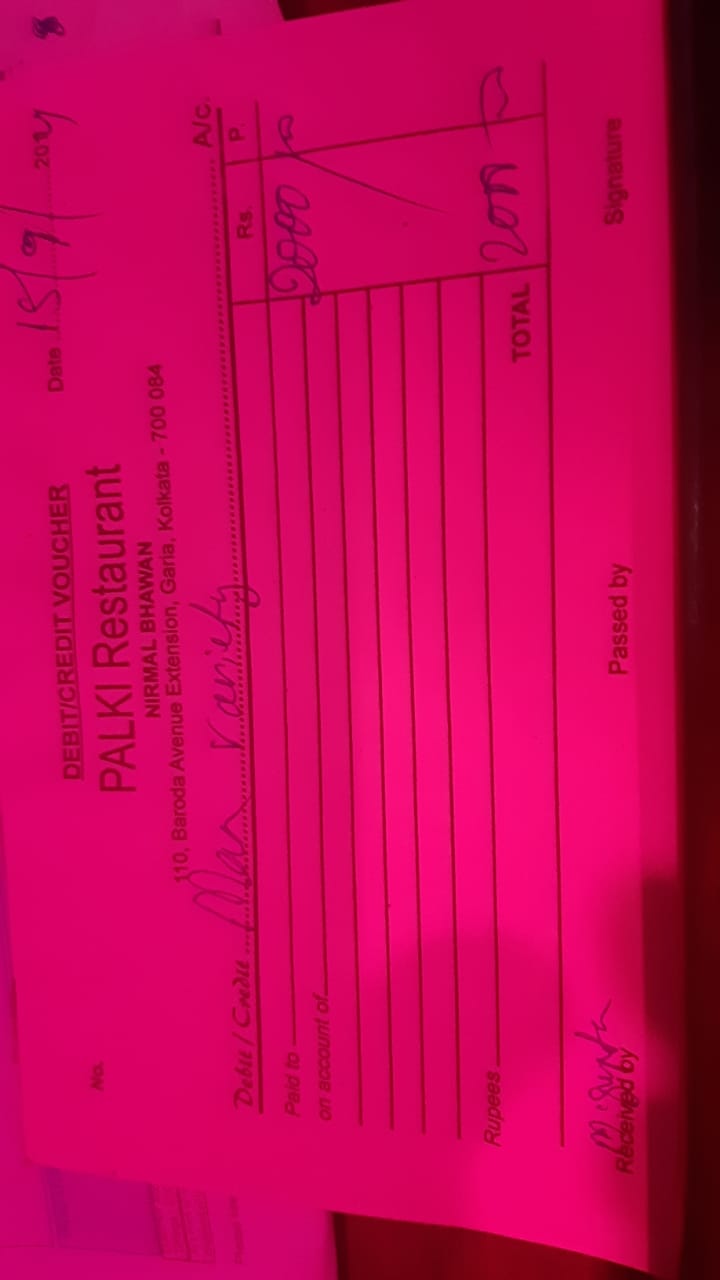 DEBIT/CREDIT VOUCHER
PALKI Restaurant
NIRMAL BHAWAN
110, Baroda Avenue Extension, Garia, Kolkata - 700 084
No.
Date 15/9/2024
Debit / Credit Man Variety A/c.
Rs. P.
Paid to 2000
on account of
Rupees TOTAL 2000
Received by Passed by Signature